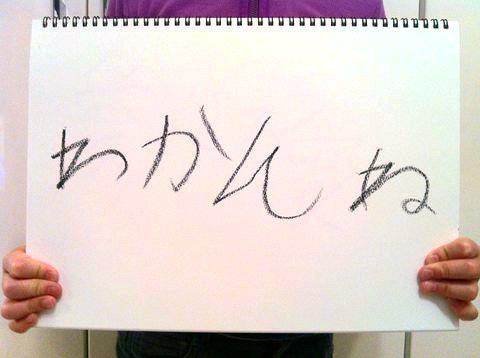 わかんね